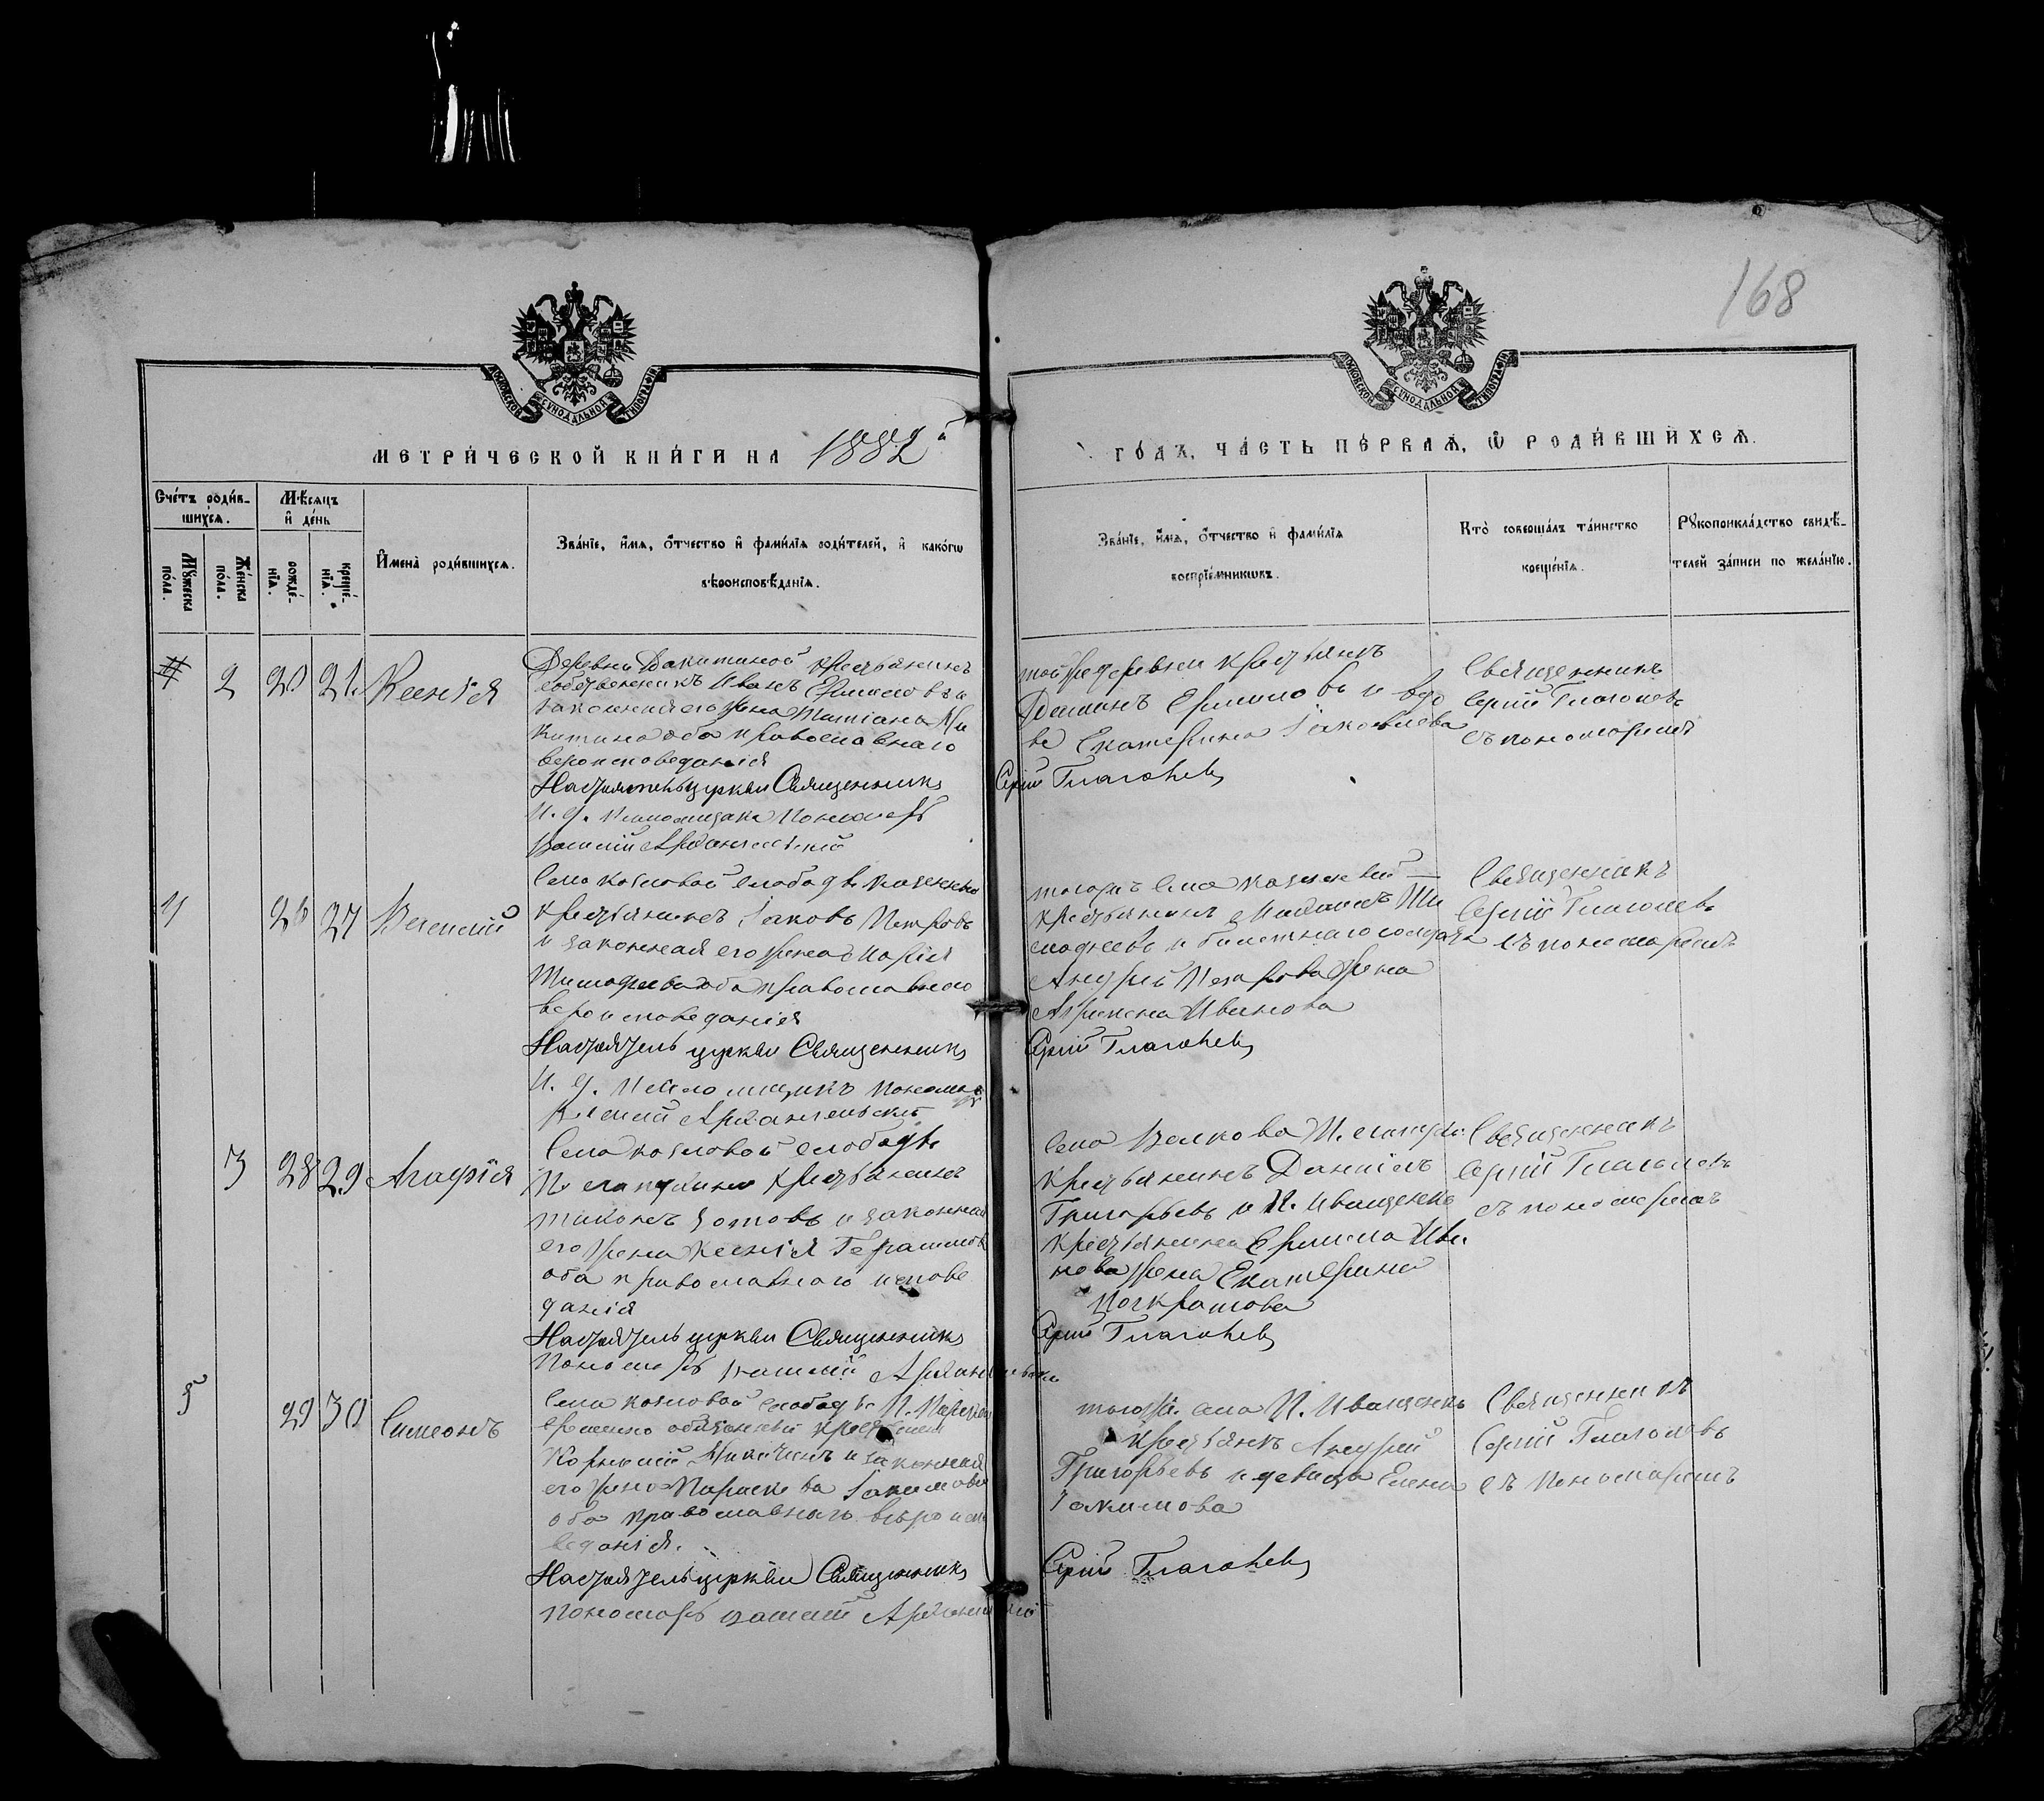 168
МОСКОВСКОЙ СѴНОДАЛЬНОЙ ТИПОГРАФІИ
МОСКОВСКОЙ СѴНОДАЛЬНОЙ ТИПОГРАФІИ
МЕТРИ́ЧЕСКОЙ КНИ́ГИ НА 1882й
ГО́ДЪ, ЧА́СТЬ ПЕ́РВАѦ, Ѿ РОДИ́ВШИХСѦ.
Сче́тъ роди́в-
шихсѧ.
Мꙋ́жеска по́ла.
Же́нска по́ла.
Мѣ́сѧцъ и҆ де́нь
рожде́-нїѧ.
креще́-нїѧ.
И҆мена̀ роди́вшихсѧ.
Зва́нїе, и҆́мѧ, ѻ҆́тчество и҆ фами́лїѧ роди́телей, и҆ како́гѡ
вѣроисповѣ́данїѧ.
Зва́нїе, и҆́мѧ, ѻ҆́тчество и҆ фами́лїѧ
воспрїе́мникѡвъ.
Кто̀ соверша́лъ та́инство
креще́нїѧ.
Рꙋкоприкла́дство свидѣ́-
телей за́писи по жела́нїю.
2 20 21 Ксенія
Деревни крестьянинъ
собственникъ Иванъ Ермиловъ и
законная его жена Татіана Ни
китина оба православнаго
вероисповеданія
Настоятель церкви Священникъ
И. д. псаломщика Пономарь
Василий Архангельский
тойже деревни крестьянинъ
Ермиловъ и вдо
ва Екатерина Іаковлева
Сергій Глаголевъ
Священникъ
Сергій Глаголевъ
съ пономаремъ
4 26 27 Василий
Села козловой слободы казенный
крестьянинъ Іаковъ Петровъ
и законная его жена Марія
Тимофеева оба православнаго
вероисповеданія
Настоятель церкви Священникъ
И. д. псаломщика Пономарь
Василий Архангельский
тогожъ села казенный
крестьянинъ Ти
мофеевъ и билетнаго солдата
Андрей жена
Агрипена Иванова
Сергій Глаголевъ
Священникъ
Сергій Глаголевъ
съ пономаремъ
3 28 29 Агафія
Села козловой слободы
крестьянинъ
Тихонъ Зотовъ и законная
его жена Ксенія Герасимов
оба православнаго испове
данія
Настоятель церкви Священникъ
Пономарь Василий Архангельский
села Волкова
крестьянинъ Даниилъ
Григорьевъ и П. Иващенко
крестьянина Ермила Ива
нова жена Екатерина
Панкратова
Сергій Глаголевъ
Священникъ
Сергій Глаголевъ
съ пономаремъ
5 29 30 Симеонъ
Села козловой слободы
временно обязанный крестьянинъ
Корнилий Никитинъ и законная
его жена Параскева Іакимова
оба православнаго вероиспо
веданія.
Настоятель церкви Священникъ
Пономарь Василий Архангельский
тогожъ села П. Иващенко
крестьянинъ Андрей
Григорьевъ и девица Елена
Іакимова
Сергій Глаголевъ
Священникъ
Сергій Глаголевъ
съ Пономаремъ